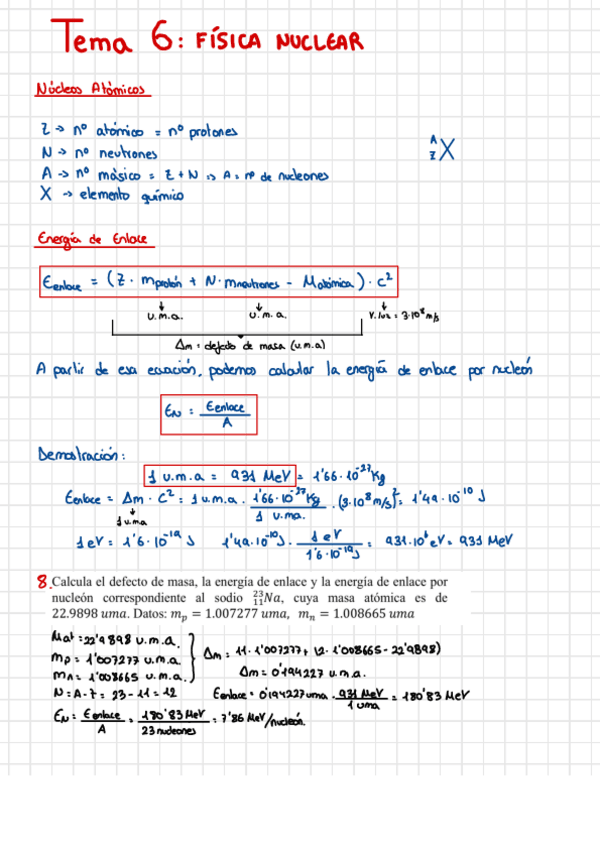 Tema 6: FÍSICA NUCLEAR
Núcleos Atómicos
Z → nº atómico = nº protones
N → nº neutrones
A → nº másico = Z + N → A = nº de nucleones
X → elemento químico
A
Z X
Energía de Enlace
Eenlace = (Z · mprotón + N · mneutrones - Matómica) · c²
u.m.a. u.m.a. v.luz = 3·10⁸ m/s
Δm = defecto de masa (u.m.a)
A partir de esa ecuación, podemos calcular la energía de enlace por nucleón
EN = Eenlace / A
Demostración:
1 u.m.a = 931 MeV = 1'66·10⁻²⁷ Kg
Eenlace = Δm · C² = 1 u.m.a. · 1'66·10⁻²⁷ Kg / 1 u.ma. · (3·10⁸ m/s)² = 1'49·10⁻¹⁰ J
1 u.ma
1 eV = 1'6·10⁻¹⁹ J 1'49·10⁻¹⁰ J · 1 eV / 1'6·10⁻¹⁹ J = 931·10⁶ eV = 931 MeV
8. Calcula el defecto de masa, la energía de enlace y la energía de enlace por
nucleón correspondiente al sodio ²³₁₁Na, cuya masa atómica es de
22.9898 uma. Datos: mₚ = 1.007277 uma, mₙ = 1.008665 uma
Mat = 22'9898 u.m.a.
mp = 1'007277 u.m.a.
mn = 1'008665 u.m.a.
N = A - Z = 23 - 11 = 12
Δm = 11 · 1'007277 + 12 · 1'008665 - 22'9898)
Δm = 0'194227 u.m.a.
Eenlace = 0'194227 uma · 931 MeV / 1 uma = 180'83 MeV
EN = Eenlace / A = 180'83 MeV / 23 nucleones = 7'86 MeV/nucleón.